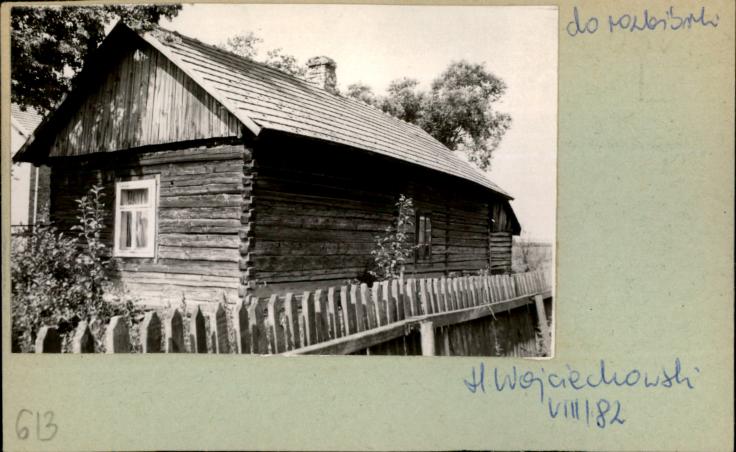 do rozbiórki
H Wojciechowski
VIII/82
613